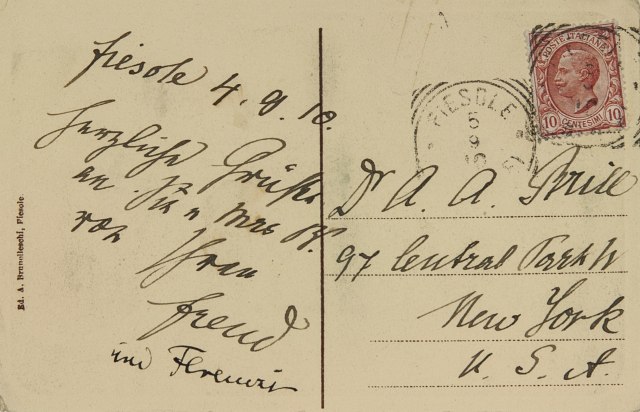 Fiesole 4.9.10.
Herzliche Grüße
an Sie u Mrs B.
von
Ihren
Freud
und Ferenczi
Ed. A. Brunelleschi, Fiesole
POSTE ITALIANE
10 CENTESIMI 10
FIESOLE
5
9
10
Dr A. A. Brill
97 Central Park W
New York
U. S. A.